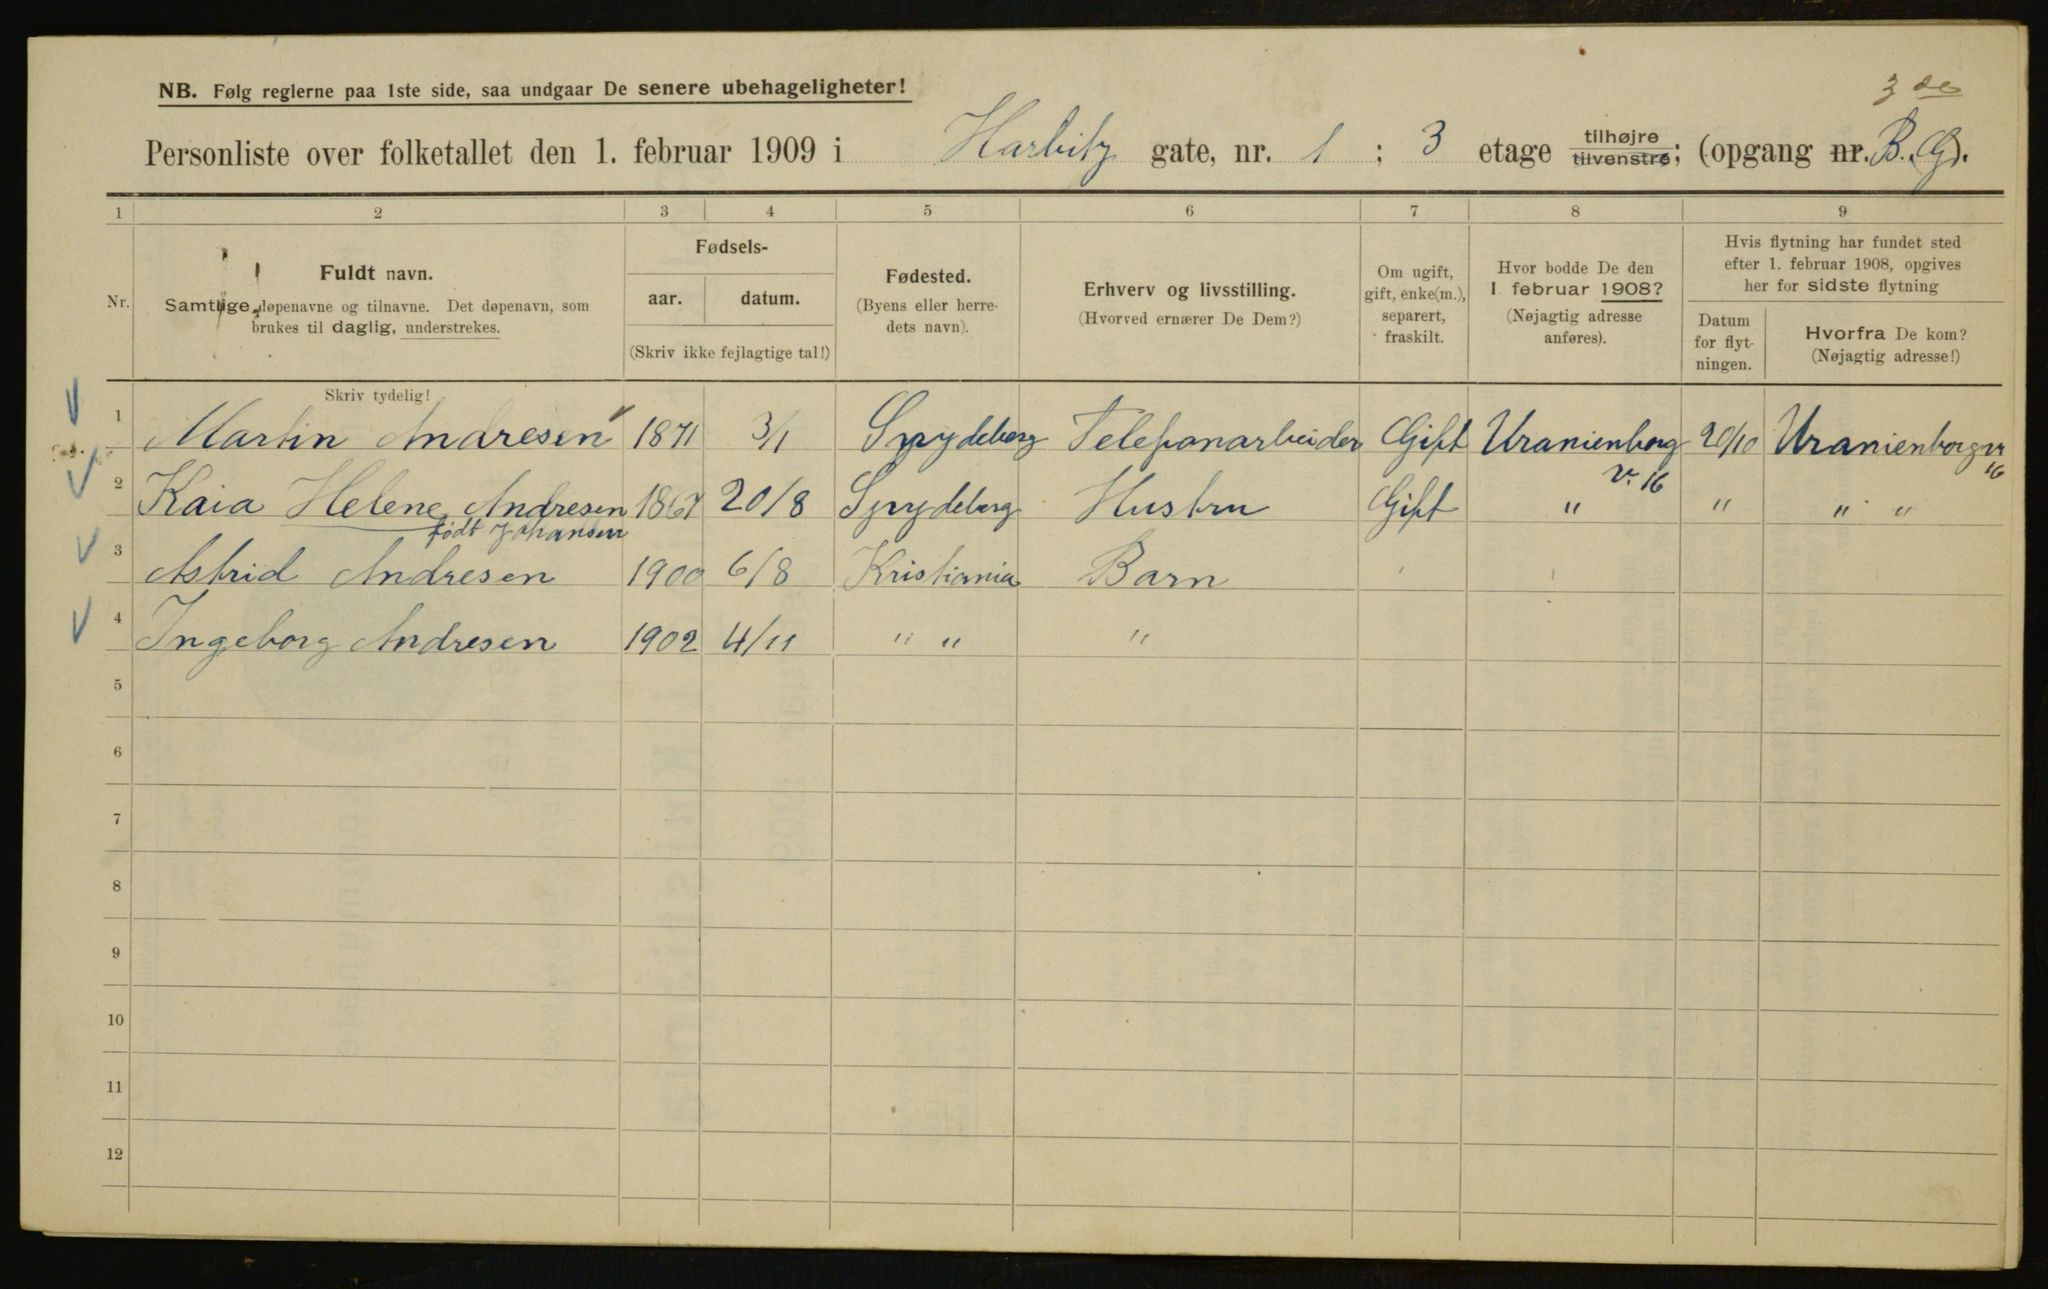 3 de
NB. Følg reglerne paa 1ste side, saa undgaar De senere ubehageligheter!
Personliste over folketallet den 1. februar 1909 i Harbitz gate, nr. 1 ; 3 etage tilhøjre tilvenstre; (opgang nr. B. G).
1 2 3 4 5 6 7 8 9
Nr.
Fuldt navn.
Samtlige døpenavne og tilnavne. Det døpenavn, som
brukes til daglig, understrekes.
Fødsels-
aar. datum.
(Skriv ikke fejlagtige tal!)
Fødested.
(Byens eller herre-
dets navn).
Erhverv og livsstilling.
(Hvorved ernærer De Dem?)
Om ugift,
gift, enke(m.),
separert,
fraskilt.
Hvor bodde De den
1 februar 1908?
(Nøjagtig adresse
anføres).
Hvis flytning har fundet sted
efter 1. februar 1908, opgives
her for sidste flytning
Datum
for flyt-
ningen.
Hvorfra De kom?
(Nøjagtig adresse!)
Skriv tydelig!
1 Martin Andresen 1871 3/1 Spydeberg Telefonarbeider Gift Uranienborg v. 16 20/10 Uranienborgv 16
2 Kaia Helene Andresen 1867 20/8 Spydeberg Hustru Gift " " " "
født Johansen
3 Astrid Andresen 1900 6/8 Kristiania Barn
4 Ingeborg Andresen 1902 4/11 " " "
5
6
7
8
9
10
11
12